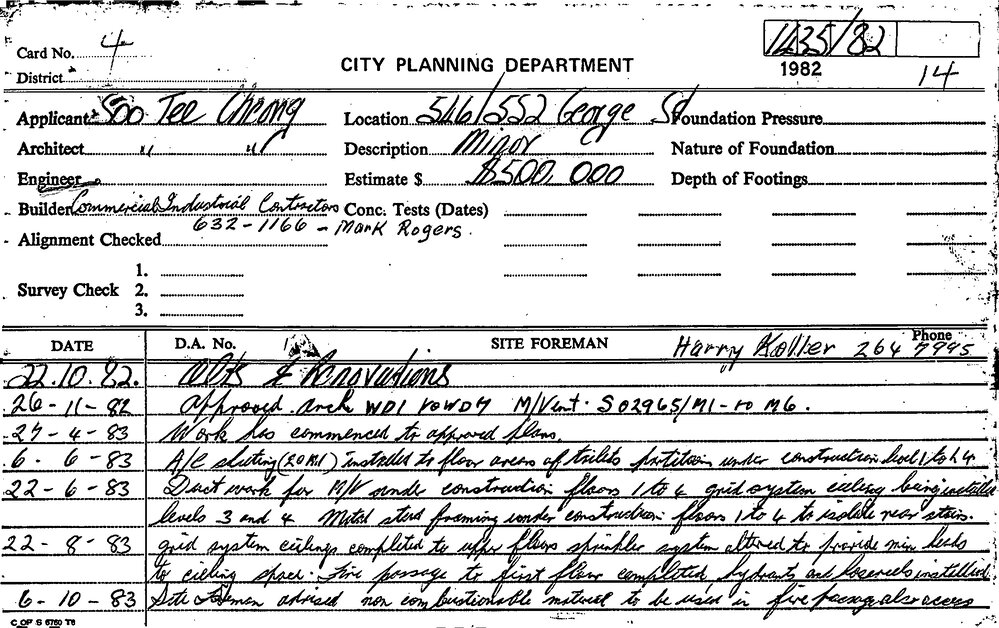 Card No. 4
1435/82
District
CITY PLANNING DEPARTMENT
1982
14
Applicant Soo Tee Cheong Location 546/552 George St Foundation Pressure
Architect " " Description Minor Nature of Foundation
Engineer Estimate $ $500,000 Depth of Footings
Builder Commercial Industrial Contractors Conc. Tests (Dates)
632-1166 - Mark Rogers.
Alignment Checked
1.
Survey Check 2.
3.
DATE D.A. No. SITE FOREMAN Harry Koller Phone 264 7995
22.10.82. Alts & Renovations
26-11-82 Approved arch WD1 to WD4 M/Vent. S02965/M1-to M6.
27-4-83 Work has commenced to approved plans.
6. 6-83 A/C ducting (20 Kl) installed to floor areas of toilets partition under construction level 1 to L4
22-6-83 Duct work for M/V under construction floors 1 to 4 grid system ceiling being installed
levels 3 and 4 Metal stud framing under construction floors 1 to 4 to isolate rear stairs.
22-8-83 grid system ceilings completed to upper floors sprinkler system altered to provide min heads
to ceiling space. Fire passage to first floor completed hydrants and hosereels installed
6-10-83 Site Foreman advised non combustionable material to be used in fire passage also access
C OF S 6760 T6